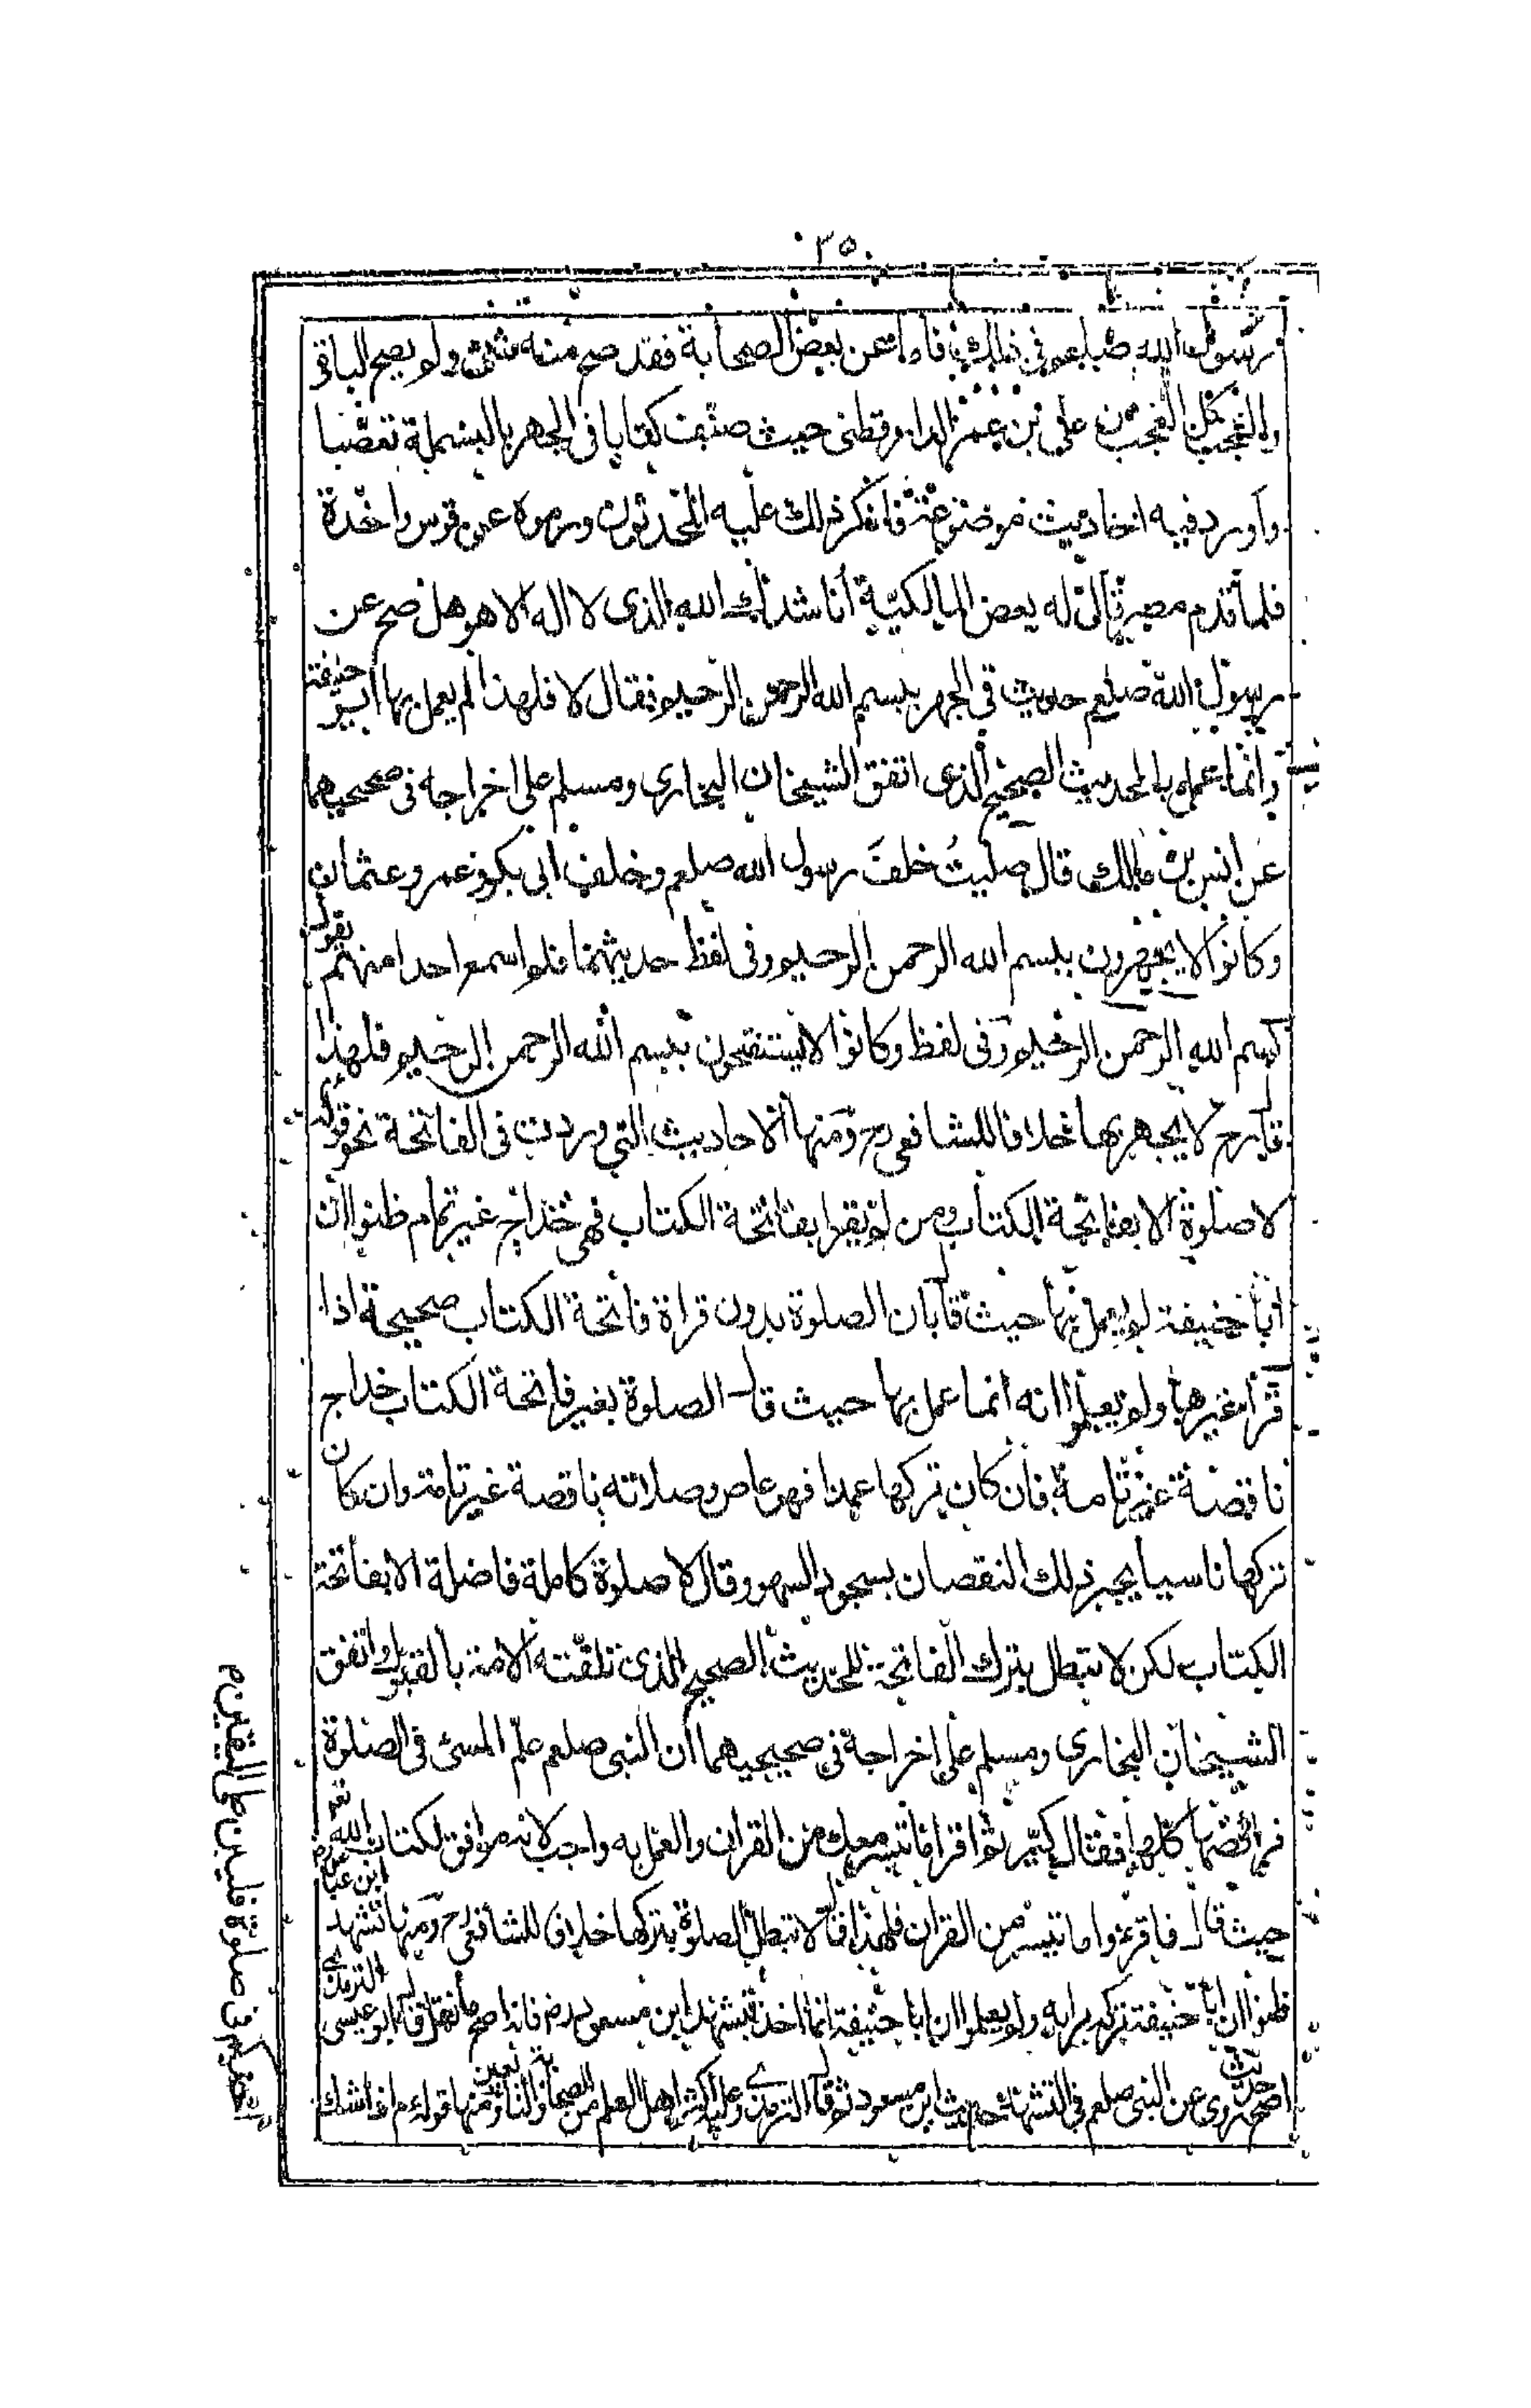 ٣٥
رسول الله صلعم فى ذلك فاما عن بعض الصحابة فقد صح منه شئ ولم يصح الباقى
والعجب كل العجب من على بن عمر الدارقطنى حيث صنف كتابا فى الجهر بالبسملة تعصبا
واورد فيه احاديث موضوعة فانكر ذلك عليه المحدثون ورموه عن قوس واحدة
فلما قدم مصر قال له بعض المالكيّة أناشدك الله الذى لا اله الا هو هل صح عن
رسول الله صلعم حديث فى الجهر ببسم الله الرحمن الرحيم فقال لا فلهذا لم يعمل بها ابو حنيفة
وانما عمل بالحديث الصحيح الذى اتفق الشيخان البخارى ومسلم على اخراجه فى صحيحيهما
عن انس بن مالك قال صليتُ خلفَ رسول الله صلعم وخلف ابى بكر وعمر وعثمان
وكانوا لا يجهرون ببسم الله الرحمن الرحيم وفى لفظ حديثهما فلم اسمع احدا منهم يقول
بسم الله الرحمن الرحيم وفى لفظ وكانوا لا يستفتحون ببسم الله الرحمن الرحيم فلهذا
قال رح لا يجهر بها خلافا للشافعى رح ومنها الاحاديث التى وردت فى الفاتحة نحو قوله
لا صلوة الا بفاتحة الكتاب ومن لم يقرا بفاتحة الكتاب فهى خداج غير تمام ظنوا ان
ابا حنيفة لم يعمل بها حيث قال بان الصلوة بدون قراة فاتحة الكتاب صحيحة اذا
قرأ غيرها ولم يعلموا انه انما عمل بها حيث قال الصلوة بغير فاتحة الكتاب خداج
ناقصة غير تامة فان كان تركها عمدا فهو عاص وصلاته ناقصة غير تامة وان كان
تركها ناسيا يجبر ذلك النقصان بسجود السهو وقال لا صلوة كاملة فاضلة الا بفاتحة
الكتاب لكن لا تبطل بترك الفاتحة للحديث الصحيح الذى تلقّته الامة بالقبول واتفق
الشيخان البخارى ومسلم على اخراجه فى صحيحيهما ان النبى صلعم علّم المسئ فى الصلوة
فرائضها كلها فقال كبّر ثم اقرا ما تيسر معك من القران والعمل به واجب لانه موافق لكتاب الله تع
حيث قال فاقرءوا ما تيسر من القران فلهذا قال لا تبطل الصلوة بتركها خلافا للشافعى رح ومنها تشهد ابن عباس رض
ظنوا ان ابا حنيفة تركه برايه ولم يعلموا ان ابا حنيفة انما اخذ بتشهد ابن مسعود رض فانه اصح ما نقل قال ابو عيسى الترمذى
اصح حديث روى عن النبى صلعم فى التشهد حديث ابن مسعود ثم قال الترمذى وعليه اكثر اهل العلم من الصحابة والتابعين ومنها قوله عم اذا شك
احدكم فى صلوة فليبن على اليقين م